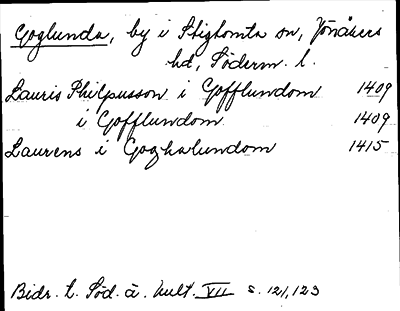 Goglunda, by i Stigtomta sn, Jönåkers
hd, Söderm. l.
Lauris Philpusson i Gofflundom 1409
i Gofflundom 1409
Laurens i Goghalundom 1415
Bidr. t. Söd. ä. kult. VII s. 121, 123